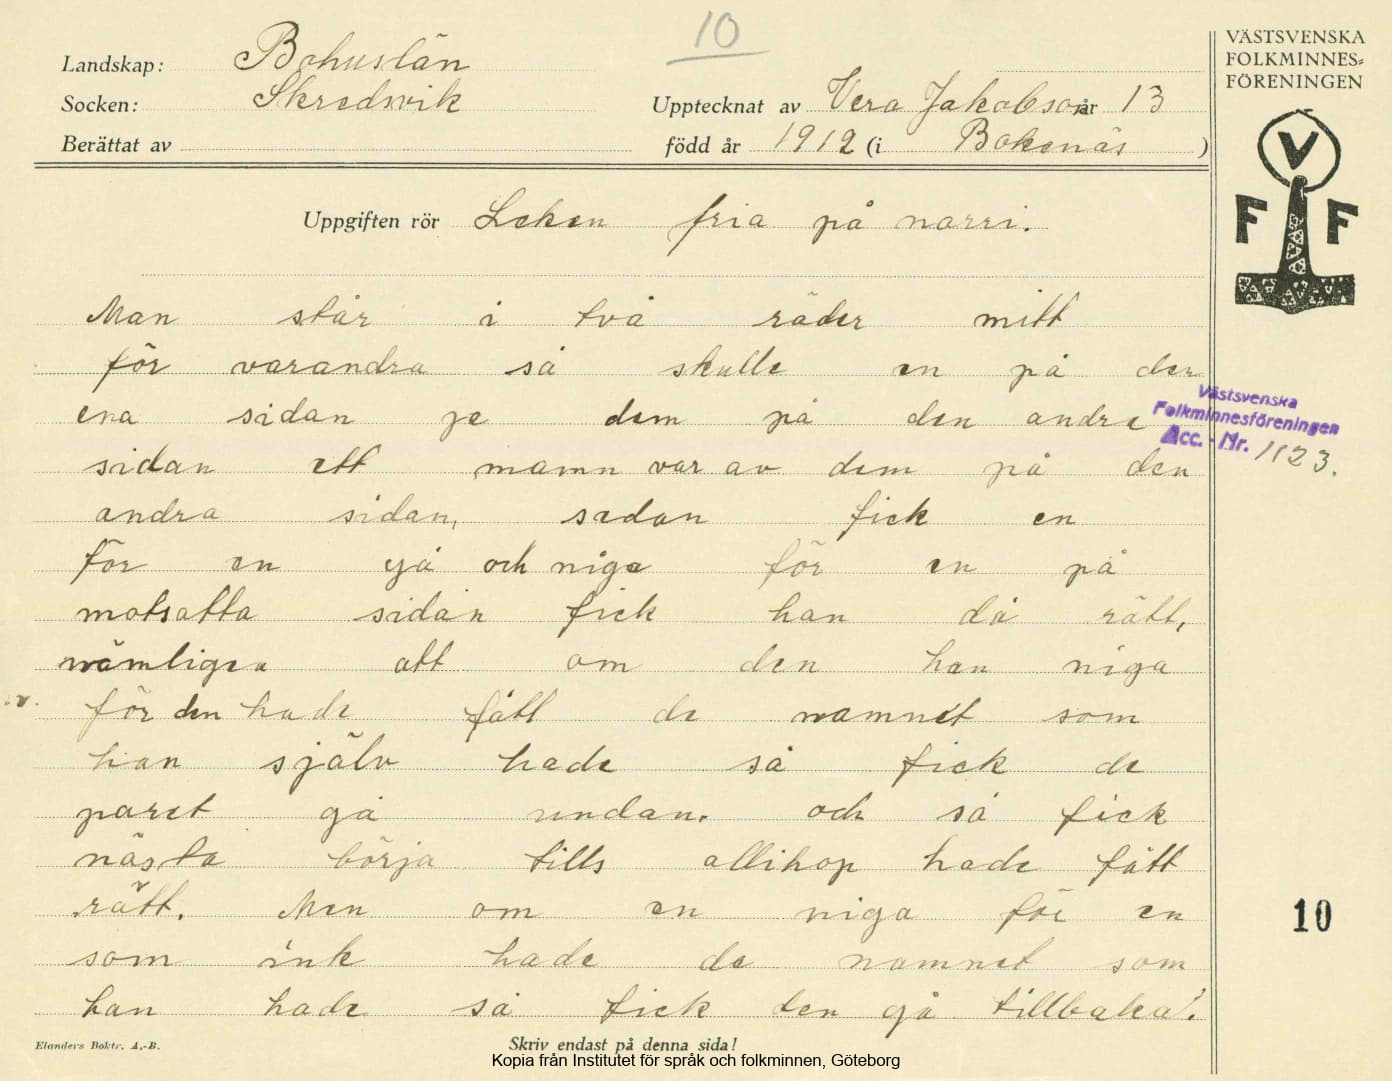 10
VÄSTSVENSKA
FOLKMINNES=
FÖRENINGEN
Landskap: Bohuslän
Socken: Skredsvik
Upptecknat av Vera Jakobson år 13
Berättat av
född år 1912 (i Bokenäs )
V
F F
Uppgiften rör Leken fria på narri.
Man står i två räder mitt
för varandra så skulle en på den
ena sidan ge dem på den andre
sidan ett namn var av dem på den
andra sidan, sedan fick en
för en gå och niga för en på
motsatta sidan fick han då rätt,
nämligen att om den han niga
för den hade fått de namnet som
han själv hade så fick de
paret gå undan. och så fick
nästa börja tills allihop hade fått
rätt. Men om en niga för en
som ink hade de namnet som
han hade så fick den gå tillbaka.
Västsvenska
Folkminnesföreningen
Acc. - Nr. 1123.
10
Elanders Boktr. A.-B.
Skriv endast på denna sida!
Kopia från Institutet för språk och folkminnen, Göteborg